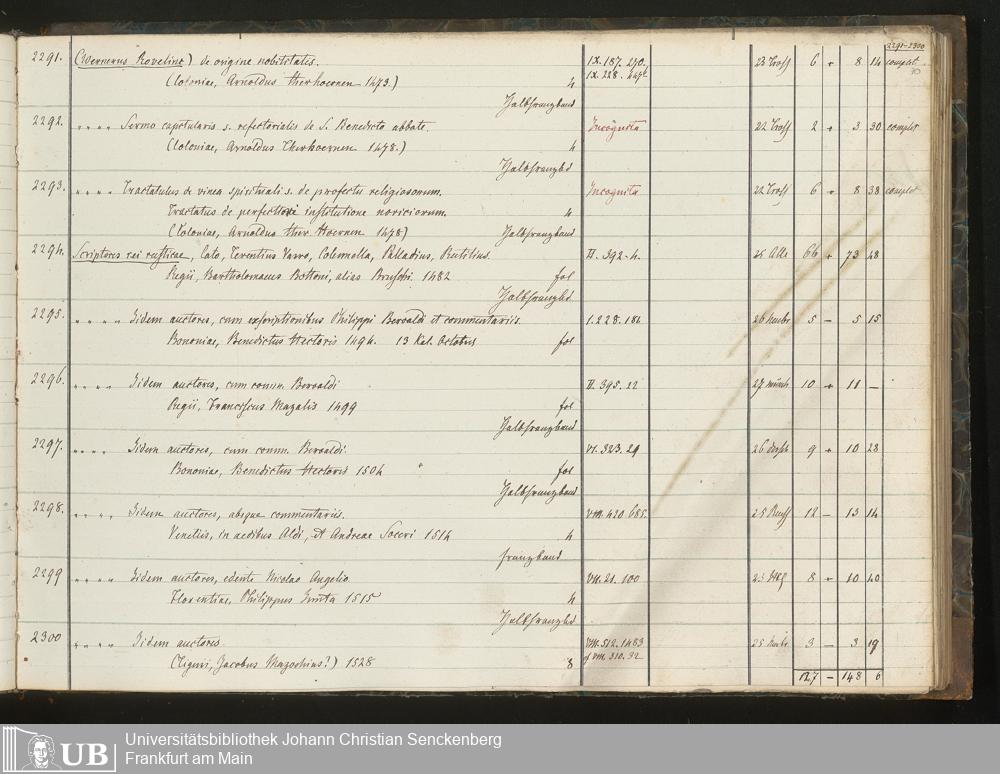 2291-2300
2291. (Wernerus Roveline) de origine nobilitatis. IX. 187. 270. 23 6 + 8 14 complet
(Coloniae, Arnoldus therhoernen 1473.) 4 IX. 228.
Halbfranzband
2292. " " " " Sermo capitularis s. refectorialis de S. Benedicto abbate. Incognita 22 2 + 3 30 complet
(Coloniae, Arnoldus Therhoernen 1478.) 4
Halbfranzbd
2293. " " " " Tractatulus de vinea spirituali s. de profectu religiosorum. Incognita 22 6 + 8 38 complet
Tractatus de perfectiori institutione noviciorum. 4
(Coloniae, Arnoldus ther Hoernen 1478) Halbfranzband
2294. Scriptores rei rusticae, Cato, Terentius Varro, Columella, Palladius, Rutilius. II. 392-4. 25 66 + 73 48
Regii, Bartholomaeus Bottoni, alias Bruschi. 1482 fol
Halbfranzbd
2295. " " " " Iidem auctores, cum exscriptionibus Philippi Beroaldi et commentariis. 1.228. 184 26 5 - 5 15
Bononiae, Benedictus Hectoris 1494. 13 Kal. Octobris fol
2296. " " " " Iidem auctores, cum comm. Beroaldi II. 395. 22 27 10 + 11 -
Regii, Franciscus Mazalis 1499 fol
Halbfranzband
2297. " " " " Iidem auctores, cum comm. Beroaldi. VI. 323. 29 26 9 + 10 28
Bononiae, Benedictus Hectoris 1504 fol
Halbfranzband
2298. " " " " Iidem auctores, absque commentariis. VIII. 420 685. 25 12 - 13 14
Venetiis, in aedibus Aldi, et Andreae Soceri 1514 4
franzband
2299 " " " " Iidem auctores, edente Nicolao Angelio VII. 21. 100 23 8 + 10 40
Florentiae, Philippus Junta 1515 4
Halbfranzbd
2300 " " " " Iidem auctores. VIII. 512. 1483 25 3 - 3 19
(Tiguri, Jacobus Mazochius?) 1528 8 cf VIII. 510. 32
127 - 148 6
UB Universitätsbibliothek Johann Christian Senckenberg
Frankfurt am Main